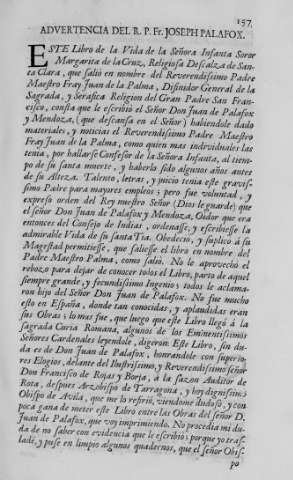 157
ADVERTENCIA DEL R. P. Fr. JOSEPH PALAFOX.
ESTE Libro de la Vida de la Señora Infanta Soror
Margarita de la Cruz, Religiosa Descalza de San-
ta Clara, que saliò en nombre del Reverendissimo Padre
Maestro Fray Juan de la Palma, Difinidor General de la
Sagrada, y Serafica Religion del Gran Padre San Fran-
cisco, consta que le escribiò el Señor Don Juan de Palafox
y Mendoza, (que descansa en el Señor) haviendole dado
materiales, y noticias el Reverendissimo Padre Maestro
Fray Juan de la Palma, como quien mas individuales las
tenia, por hallarse Confessor de la Señora Infanta, al tiem-
po de su santa muerte, y haverlo sido algunos años antes
de su Alteza. Talento, letras, y juicio tenia este gravis-
simo Padre para mayores empleos; pero fue voluntad, y
expresso orden del Rey nuestro Señor (Dios le guarde) que
el señor Don Juan de Palafox y Mendoza, Oidor que era
entonces del Consejo de Indias, ordenasse, y escribiesse la
admirable Vida de su santa Tia. Obedeciò, y suplicò à su
Magestad permitiesse, que saliesse el libro en nombre del
Padre Maestro Palma, como saliò. No le aprovechò el
rebozo para dejar de conocer todos el Libro, parto de aquel
siempre grande, y fecundissimo Ingenio; todos le aclama-
ron hijo del Señor Don Juan de Palafox. No fue mucho
esto en España, donde tan conocidas, y aplaudidas eran
sus Obras; lo mas fue, que luego que este Libro llegò à la
sagrada Curia Romana, algunos de los Eminentissimos
Señores Cardenales leyendole, digeron: Este Libro, sin du-
da es de Don Juan de Palafox, honrandole con superio-
res Elogios, delante del Ilustrissimo, y Reverendissimo señor
Don Francisco de Rojas y Borja, à la sazon Auditor de
Rota, despues Arzobispo de Tarragona, y hoy dignissimo
Obispo de Avila, que me lo refiriò, viendome dudoso, y con
poca gana de meter este Libro entre las Obras del señor D.
Juan de Palafox, que voy imprimiendo. No procedia mi du-
da de no saber con evidencia que le escribiò; porque yo tras-
ladè, y puse en limpio algunos quadernos, que el señor Obis-
po